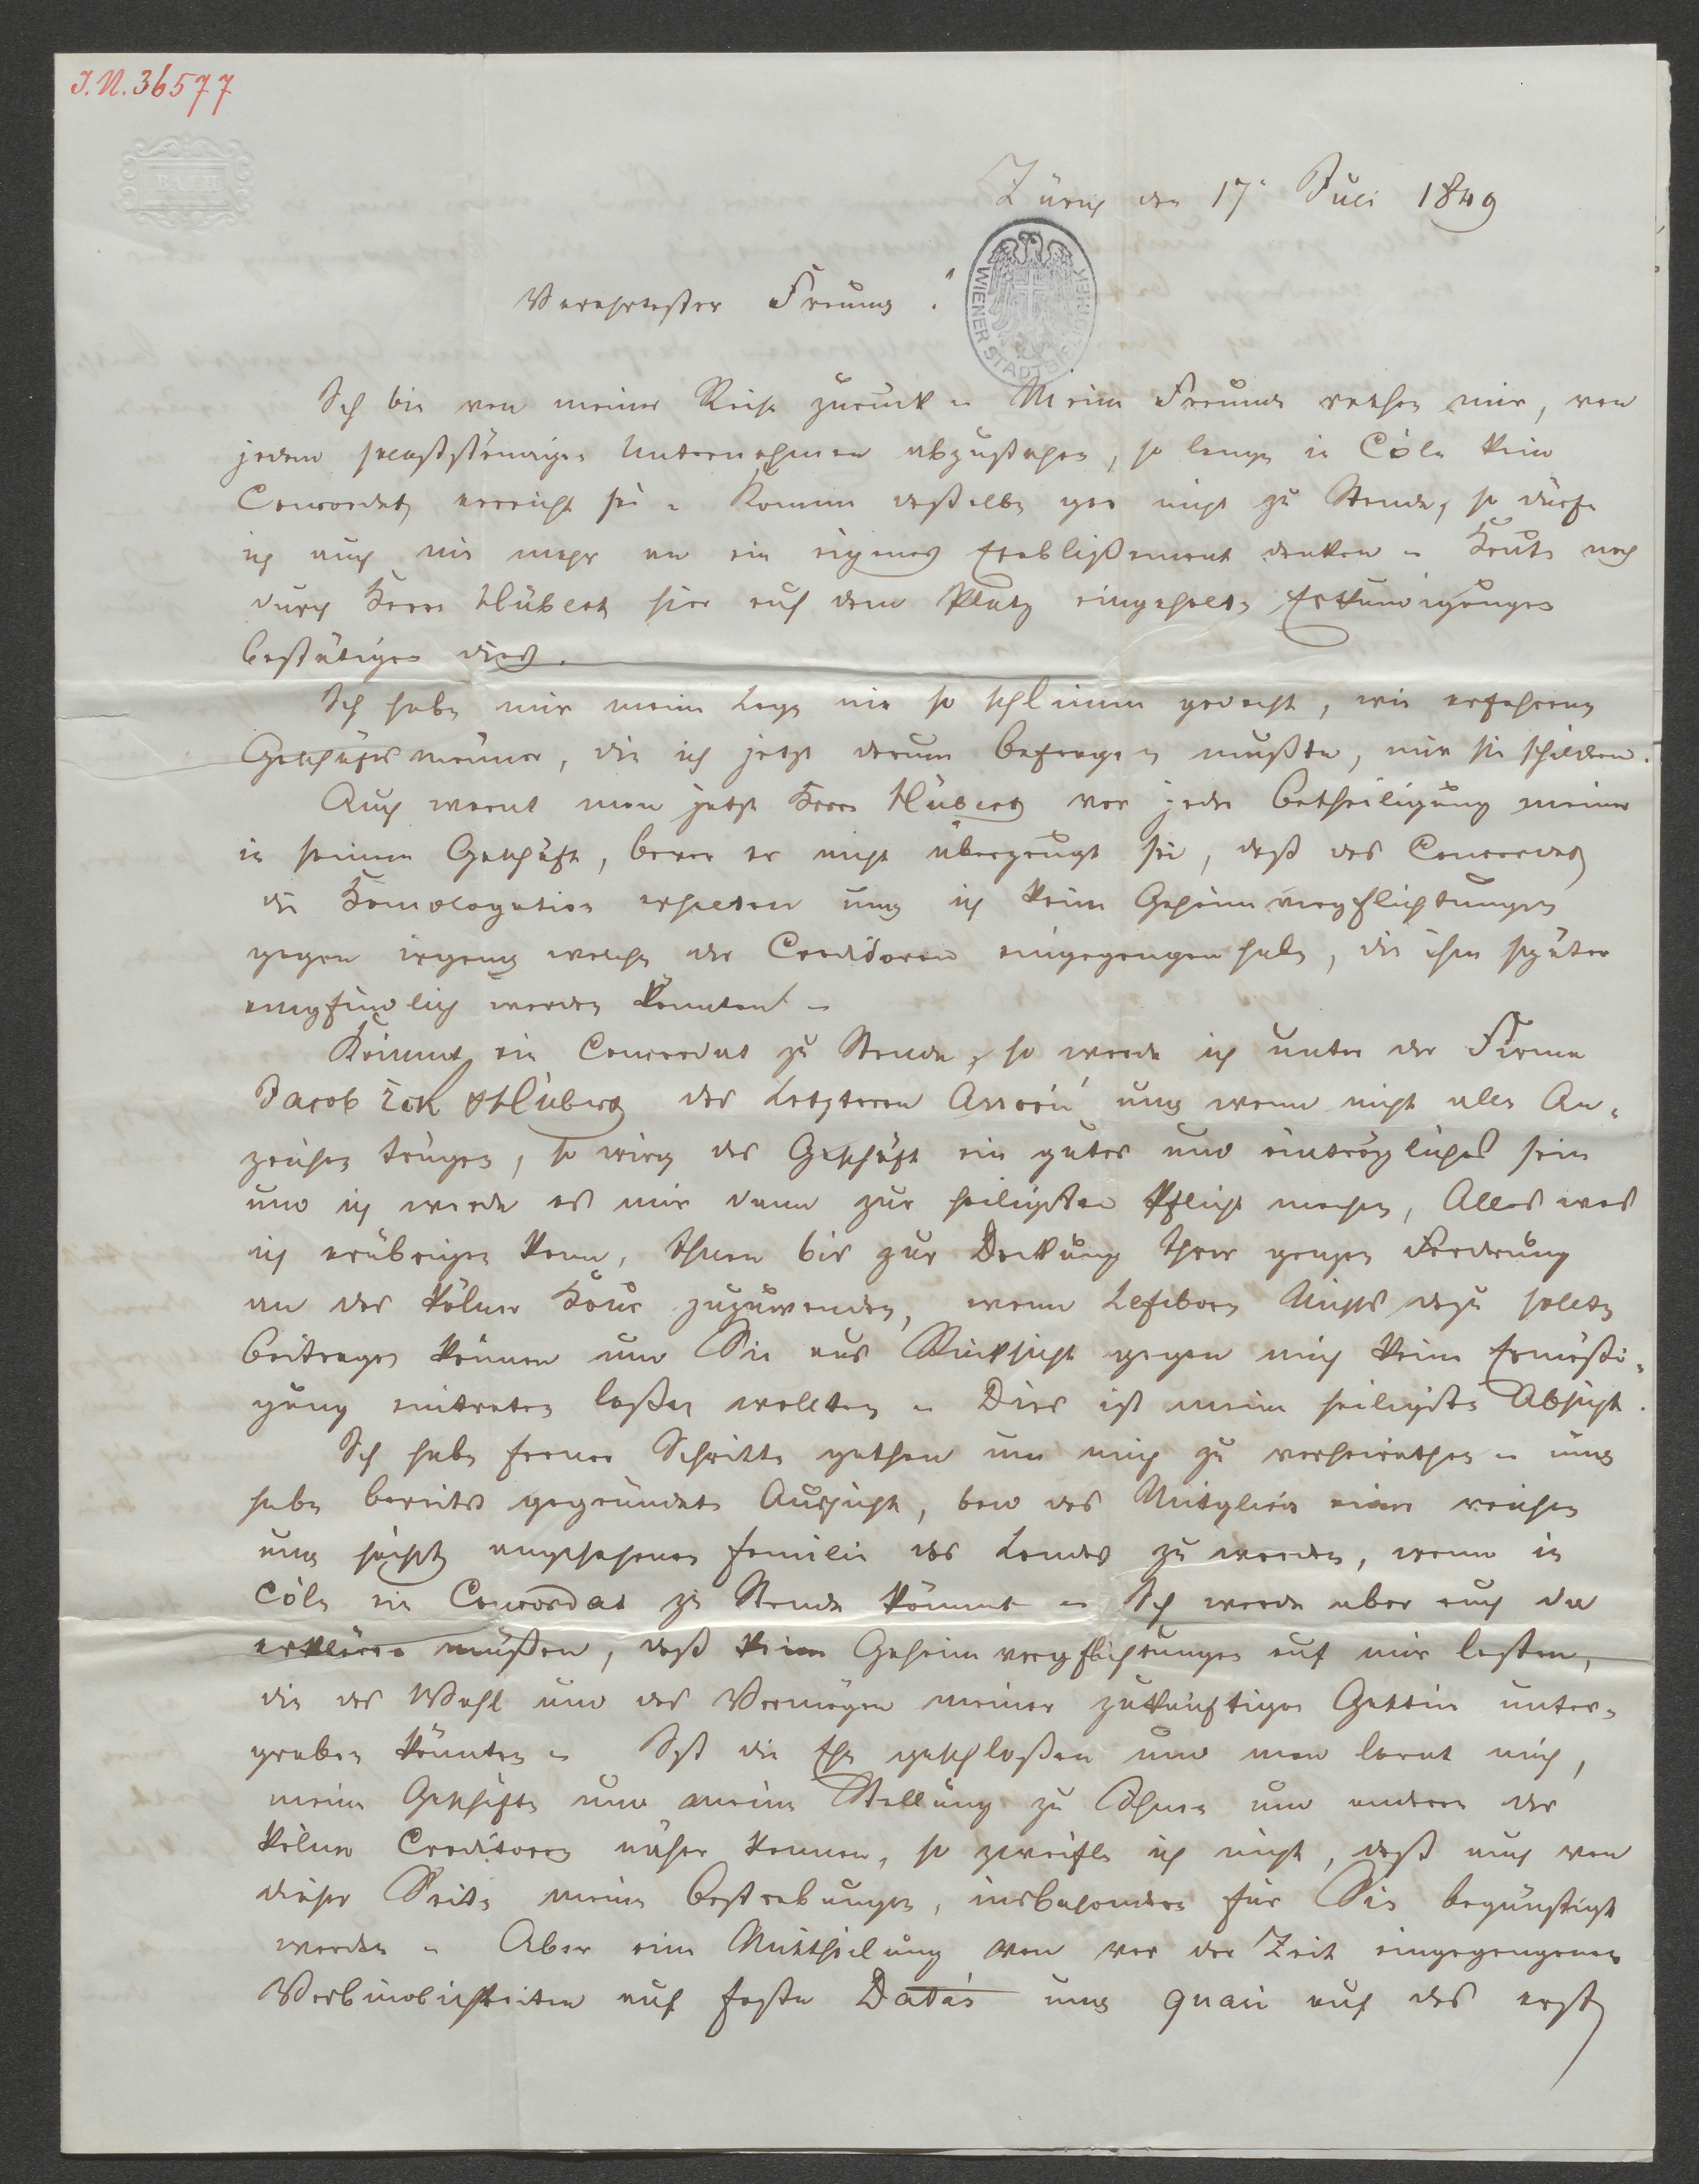 I. N. 36577
BATH
Zürich den 17. Juli 1849
WIENER STADTBIBLIOTHEK
Verehrtester Freund!
Ich bin von meiner Reise zurück – Meine Freunde rathen mir, von
jedem selbstständigen Unternehmen abzustehen, so lange in Cöln kein
Concordat erreicht sei – Komme daßelbe gar nicht zu Stande, so dürfe
ich auch nie mehr an ein eigenes Etablißement denken – Heute noch
durch Herrn Hübert hier auf dem Platz eingeholte Erkundigungen
bestätigen dies.
Ich habe mir meine Lage nie so schlimm gedacht, wie erfahrene
Geschäftsmänner, die ich jetzt darum befragen mußte, mir sie schildern.
Auch warnt man jetzt Herrn Hübert vor jeder Betheiligung meiner
in seinem Geschäft, bevor er nicht überzeugt sei, daß das Concordat
die Homologation erhalten und ich keine Geheimverpflichtungen
gegen irgend welche der Creditoren eingegangen habe, die ihm später
empfindlich werden könnten –
Kömmt ein Concordat zu Stande, so werde ich unter der Firma
Jacob Hübert des Letzteren Associé und wenn nicht alle An-
zeichen trügen, so wird das Geschäft ein gutes und einträgliches sein
und ich werde es mir dann zur heiligsten Pflicht machen, Alles was
ich erübrigen kann, Ihnen bis zur Deckung Ihrer ganzen Forderung
an das Kölner Haus zuzuwenden, wenn Lefebvre Nichts dazu sollte
beitragen können und Sie aus Rücksicht gegen mich keine Ermäßi-
gung eintreten laßen wollten – Dies ist meine heiligste Absicht.
Ich habe ferner Schritte gethan um mich zu verheirathen – und
habe bereits gegründete Aussicht, bald das Mitglied einer reichen
und höchst angesehenen Familie des Landes zu werden, wenn in
Cöln ein Concordat zu Stande kömmt – Ich werde aber auch da
erklären müßen, daß keine Geheimverpflichtungen auf mir lasten,
die das Wohl und das Vermögen meiner zukünftigen Gattin unter-
graben könnten – Ist die Ehe geschloßen und man lernt mich,
meine Geschäfte und meine Stellung zu Ihnen und anderen der
Kölner Creditoren näher kennen, so zweifle ich nicht, daß auch von
dieser Seite meine Bestrebungen, insbesondere für Sie begünstigt
werden – Aber eine Mittheilung von vor der Zeit eingegangenen
Verbindlichkeiten auf feste Datas und quasi auf das erste